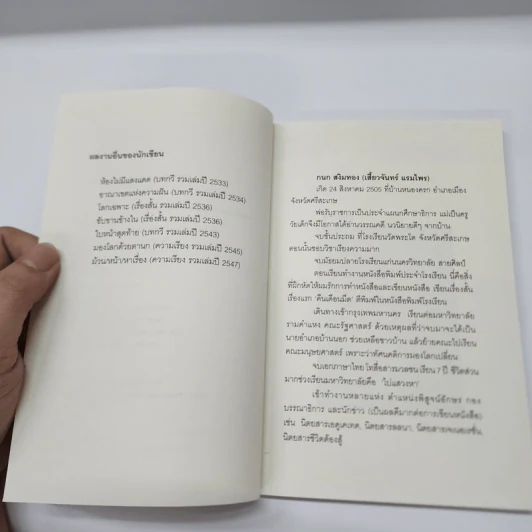 ผลงานอื่นของนักเขียน
ห้องไม่มีแสงแดด (บทกวี รวมเล่มปี 2533)
อาณาเขตแห่งความฝัน (บทกวี รวมเล่มปี 2534)
โลกเฉพาะ (เรื่องสั้น รวมเล่มปี 2536)
ขับขานข้างใน (เรื่องสั้น รวมเล่มปี 2536)
ใบหน้าสุดท้าย (บทกวี รวมเล่มปี 2543)
มองโลกด้วยตานก (ความเรียง รวมเล่มปี 2545)
ม้วน/หน้า/หาเรื่อง (ความเรียง รวมเล่มปี 2547)
กนก สงิมทอง (เสี้ยวจันทร์ แรมไพร)
เกิด 24 สิงหาคม 2505 ที่บ้านหนองครก อำเภอเมือง
จังหวัดศรีสะเกษ
พ่อรับราชการเป็นประจำแผนกศึกษาธิการ แม่เป็นครู
วัยเด็กจึงมีโอกาสได้อ่านวรรณคดี นวนิยายดีๆ จากบ้าน
จบชั้นประถม ที่โรงเรียนวัดพระโต จังหวัดศรีสะเกษ
ตอนนั้นชอบวิชาเรียงความมาก
จบมัธยมปลายโรงเรียนแก่นนครวิทยาลัย สายศิลป์
ตอนเรียนทำงานหนังสือพิมพ์ประจำโรงเรียน นี่คือสิ่ง
ที่ฝึกหัดให้ผมรักการทำหนังสือและเขียนหนังสือ เขียนเรื่องสั้น
เรื่องแรก 'คืนเดือนมืด' ตีพิมพ์ในหนังสือพิมพ์โรงเรียน
เดินทางเข้ากรุงเทพมหานคร เรียนต่อมหาวิทยาลัย
รามคำแหง คณะรัฐศาสตร์ ด้วยเหตุผลที่ว่าจบมาจะได้เป็น
นายอำเภอบ้านนอก ช่วยเหลือชาวบ้าน แล้วย้ายคณะไปเรียน
คณะมนุษยศาสตร์ เพราะว่าทัศนคติการมองโลกเปลี่ยน
จบเอกภาษาไทย โทสื่อสารมวลชน เรียน 7 ปี ชีวิตส่วน
มากช่วงเรียนมหาวิทยาลัยคือ 'ไปแสวงหา'
เข้าทำงานหลายแห่ง ตำแหน่งพิสูจน์อักษร กอง
บรรณาธิการ และนักข่าว (เป็นผลดีมากต่อการเขียนหนังสือ)
เช่น นิตยสารเอดูเคเทค, นิตยสารลลนา, นิตยสายเจเนอเรชั่น,
นิตยสารชีวิตต้องสู้